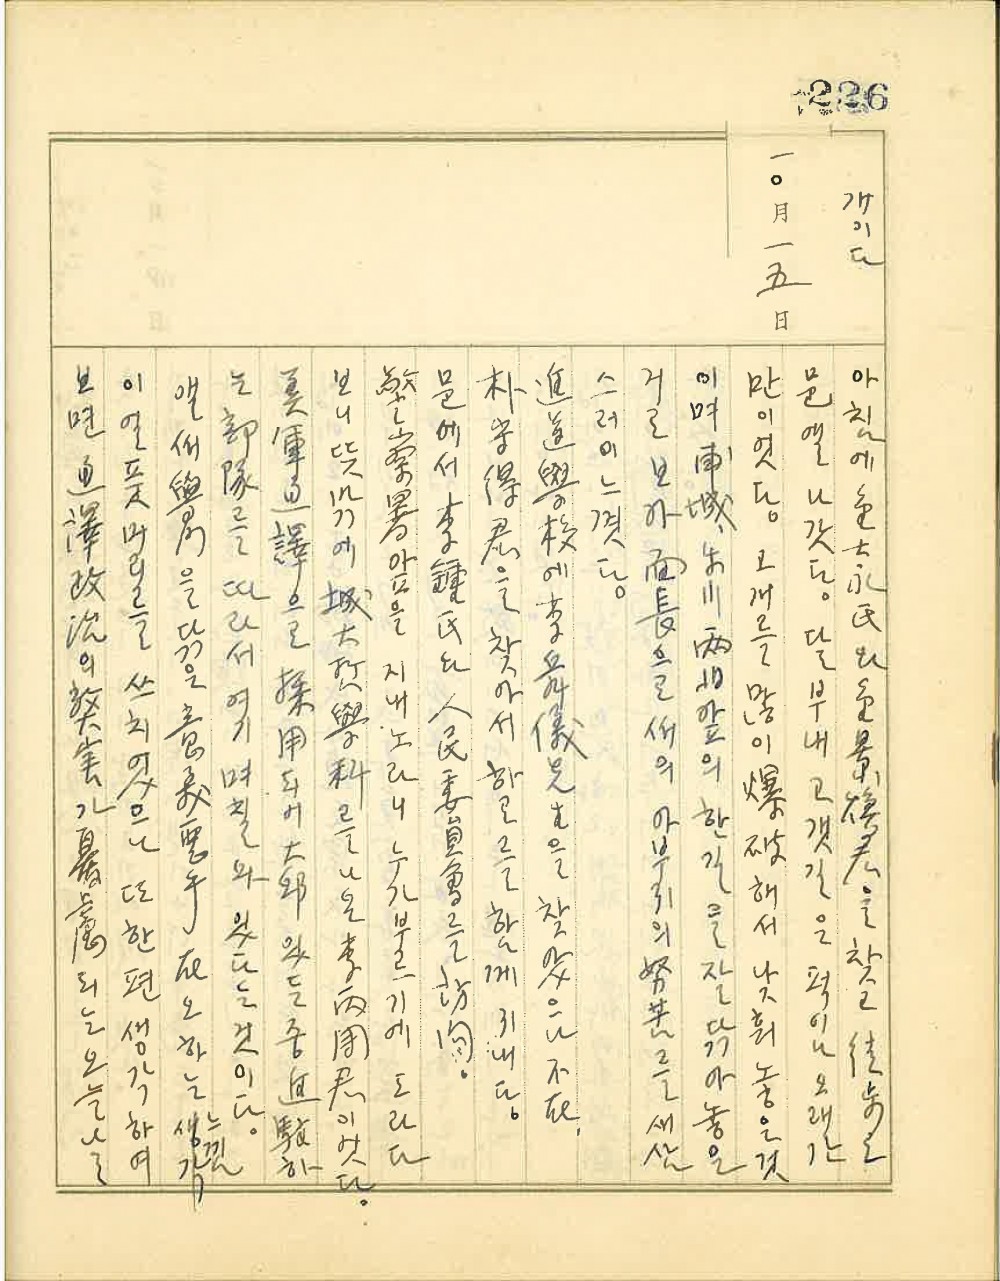 226
개이다
一〇月 一五日
아침에 金大永氏와 金景煥君을 찾고 徒步로
邑앨 나갓당. 달부내 고갯길은 퍽이나 오래간
만이엇당. 고개를 많이 爆破해서 낮휘 놓은것
이며 南城, 牛川 兩 앞의 한길을 잘 닦아놓은
거르 보아 面長으로써의 아부지의 努苦를 새삼
스러이 느꼇당.
進道學校에 李舜儀先生을 찾았으나 不在.
朴守得君을 찾아서 하로를 함게 지내당.
邑에서 李鍾氏와 人民委員會를 訪問.
警察署 앞을 지내노라니 누가 부르기에 도라다
보니 뜻밖에 城大 學科를 나온 李丙用君이엇다.
美軍通譯으로 採用되어 大邱 있든 중 進駐하
는 部隊를 따라서 여기 며칠 와 있다는 것이다.
앨써 學問을 닦은 意義 在오 하는 생각 느낌
이 얼픗 머리를 쓰치었으나 또 한편 생각하여
보면 通譯政治의 弊害가 憂慮되는 오늘날